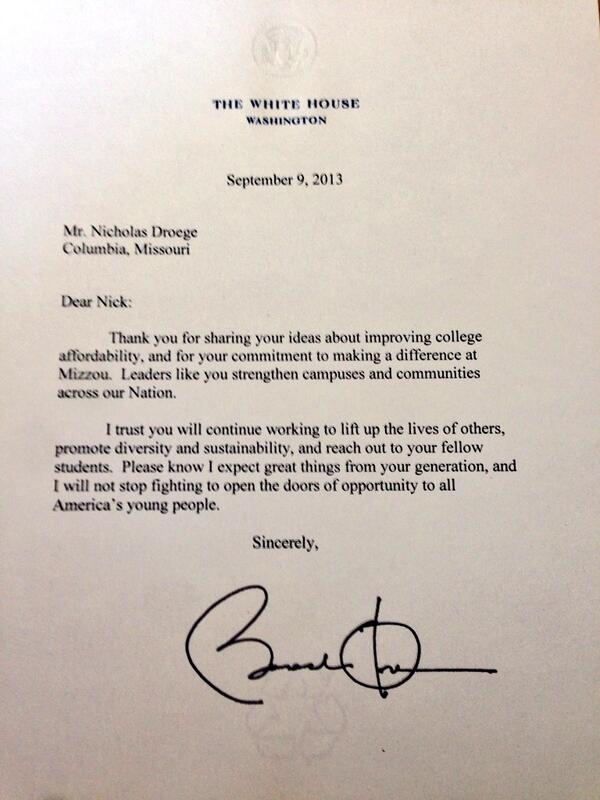 THE WHITE HOUSE
WASHINGTON
September 9, 2013
Mr. Nicholas Droege
Columbia, Missouri
Dear Nick:
Thank you for sharing your ideas about improving college
affordability, and for your commitment to making a difference at
Mizzou. Leaders like you strengthen campuses and communities
across our Nation.
I trust you will continue working to lift up the lives of others,
promote diversity and sustainability, and reach out to your fellow
students. Please know I expect great things from your generation, and
I will not stop fighting to open the doors of opportunity to all
America's young people.
Sincerely,